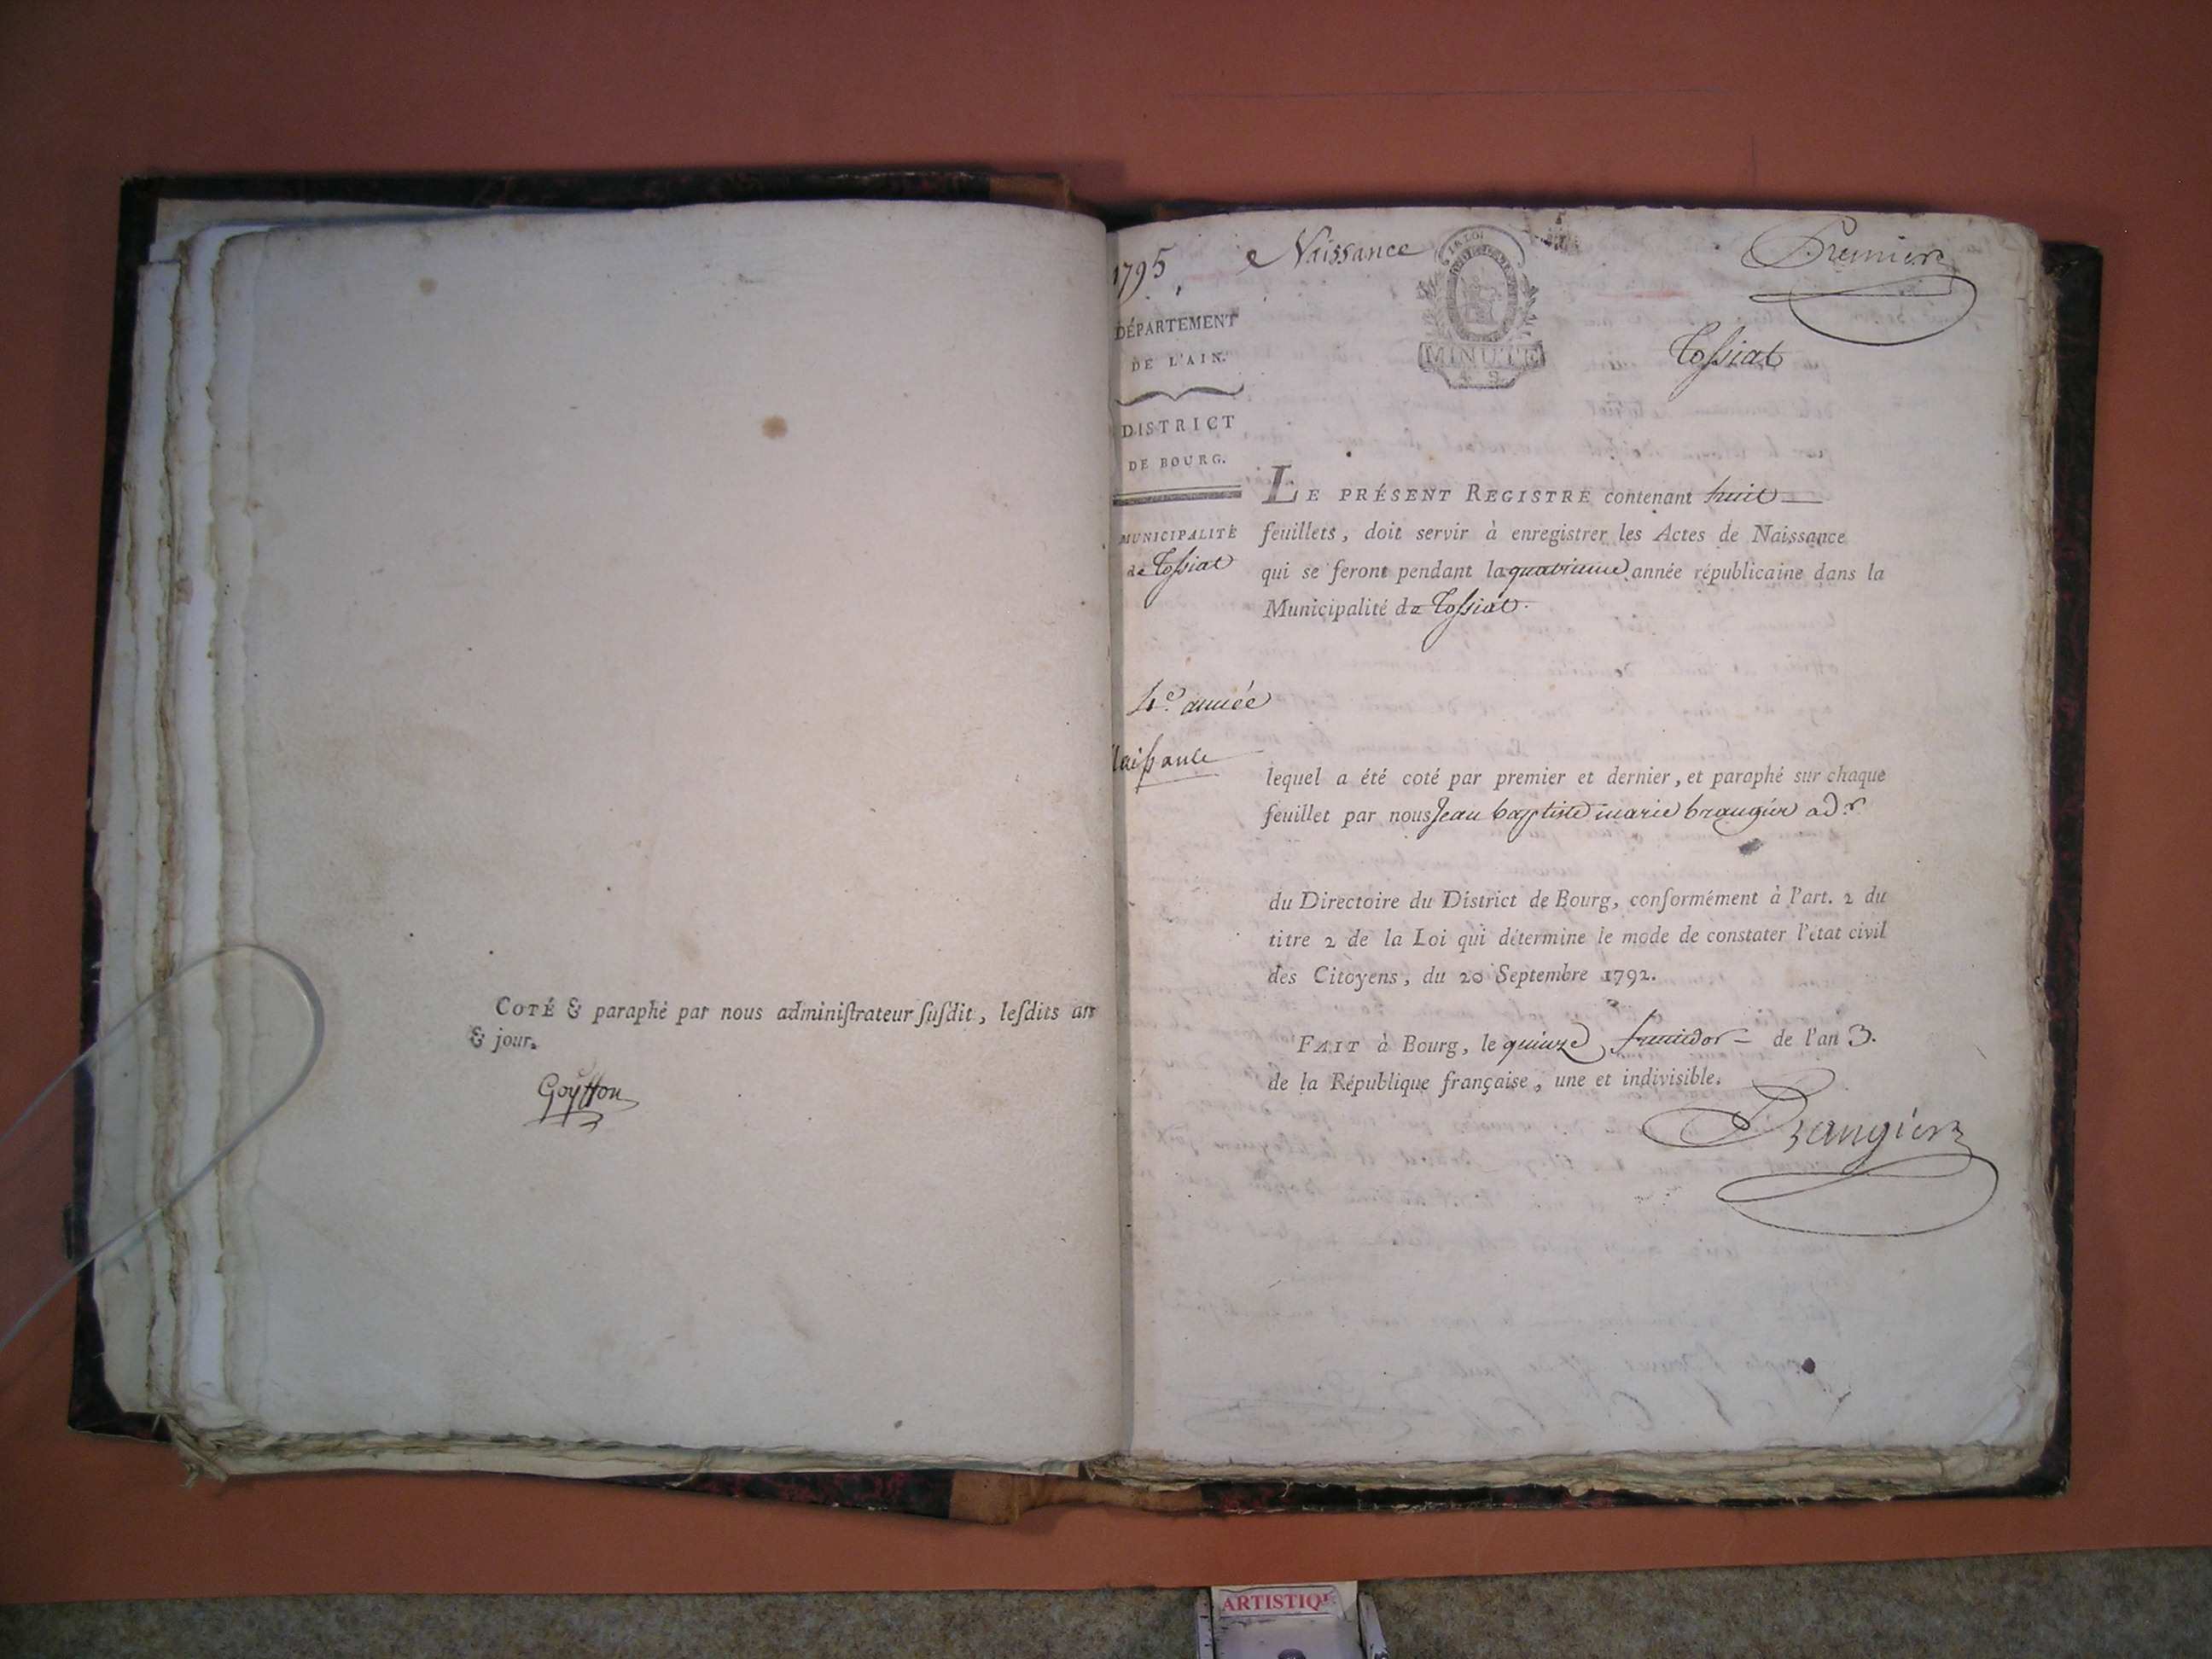 COTÉ & paraphé par nous administrateur susdit, lesdits an
& jour.
Goyffon
1795
Naissance
Premier
LA LOI
MINUTE
4 S
Tossiat
DÉPARTEMENT
DE L'AIN.
DISTRICT
DE BOURG.
MUNICIPALITÉ
de Tossiat
4e. année
Naissance
LE PRÉSENT REGISTRE contenant huit
feuillets, doit servir à enregistrer les Actes de Naissance
qui se feront pendant la quatrieme année républicaine dans la
Municipalité de Tossiat.
lequel a été coté par premier et dernier, et paraphé sur chaque
feuillet par nous Jean baptiste marie brangier adr.
du Directoire du District de Bourg, conformément à l'art. 2 du
titre 2 de la Loi qui détermine le mode de constater l'état civil
des Citoyens, du 20 Septembre 1792.
FAIT à Bourg, le quinze fructidor de l'an 3.
de la République française, une et indivisible.
Brangier
ARTISTIQU